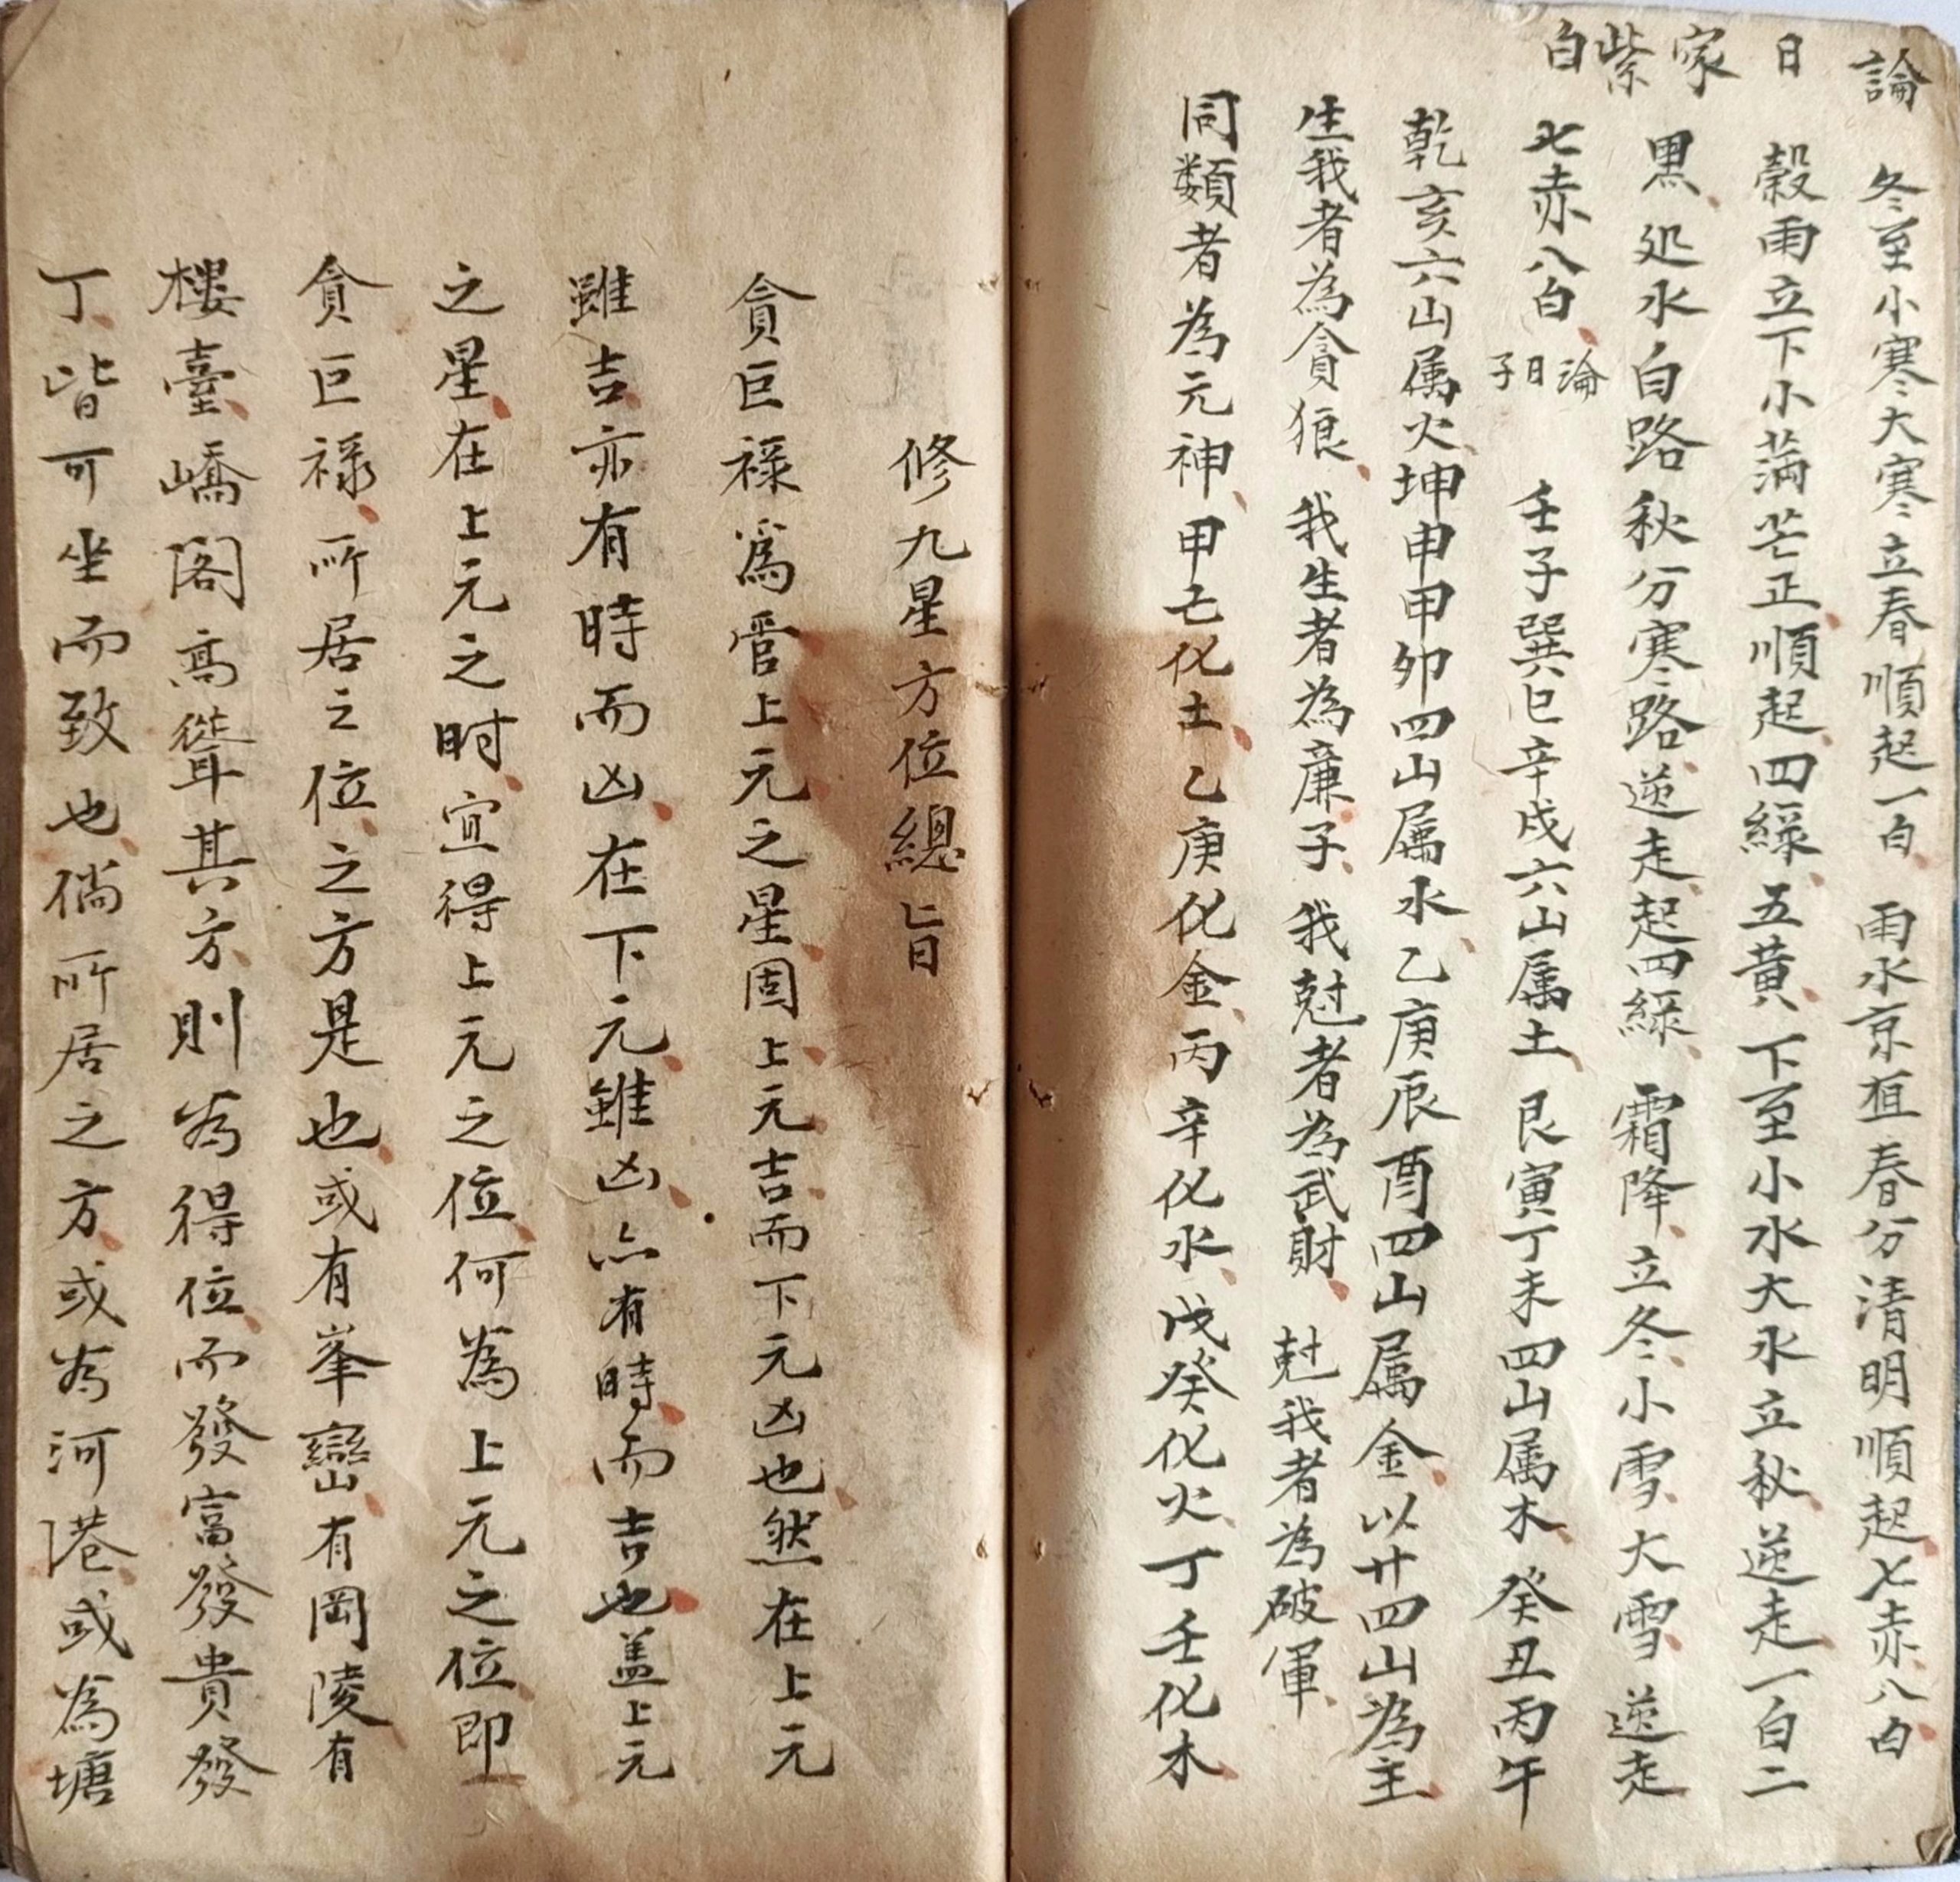 論日家紫白
冬至小寒大寒立春順起一白雨水京直春分清明順起七赤八白
穀雨立下小滿芒正順起四綠五黃下至小水大水立秋逆走一白二
黑处水白路秋分寒路逆走起四綠霜降立冬小雪大雪逆走
七赤八白
論日子
壬子巽巳辛戌六山属土艮寅丁未四山属木癸丑丙午
乾亥六山属火坤申甲卯四山属水乙庚辰酉四山属金以廿四山為主
生我者為貪狼我生者為廉子我尅者為武財尅我者為破軍
同類者為元神甲己化土乙庚化金丙辛化水戊癸化火丁壬化木
修九星方位總旨
貪巨祿爲管上元之星固上元吉而下元凶也然在上元
雖吉亦有時而凶在下元雖凶亦有時而吉也盖上元
之星在上元之时宜得上元之位何為上元之位即
貪巨祿所居之位之方是也或有峯巒有岡陵有
樓臺嶠閣高聳其方則为得位而發富發貴發
丁皆可坐而致也倘所居之方或为河港或為塘